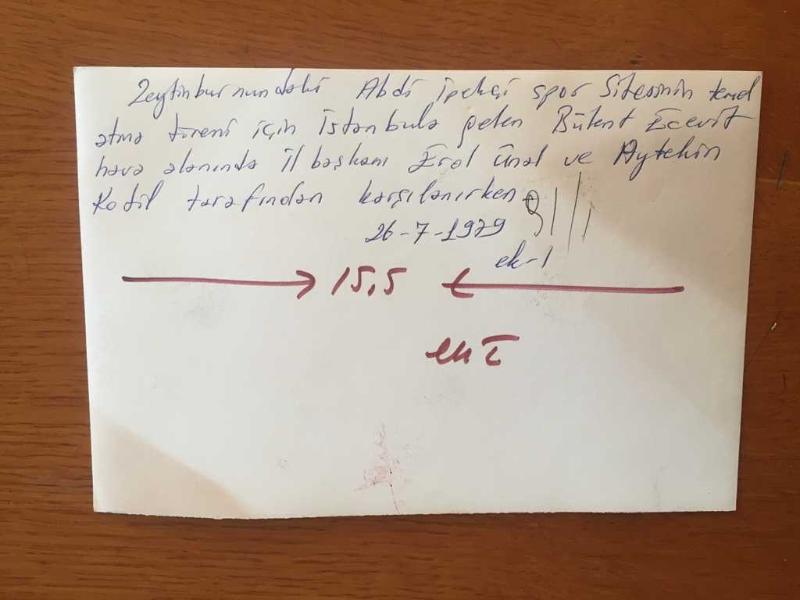 Zeytinburnundaki Abdi İpekçi spor Sitesinin temel
atma töreni için İstanbula gelen Bülent Ecevit
hava alanında İl başkanı Erol Ünal ve Aytekin
Kotil tarafından karşılanırken.
26-7-1979
ek-1
15,5